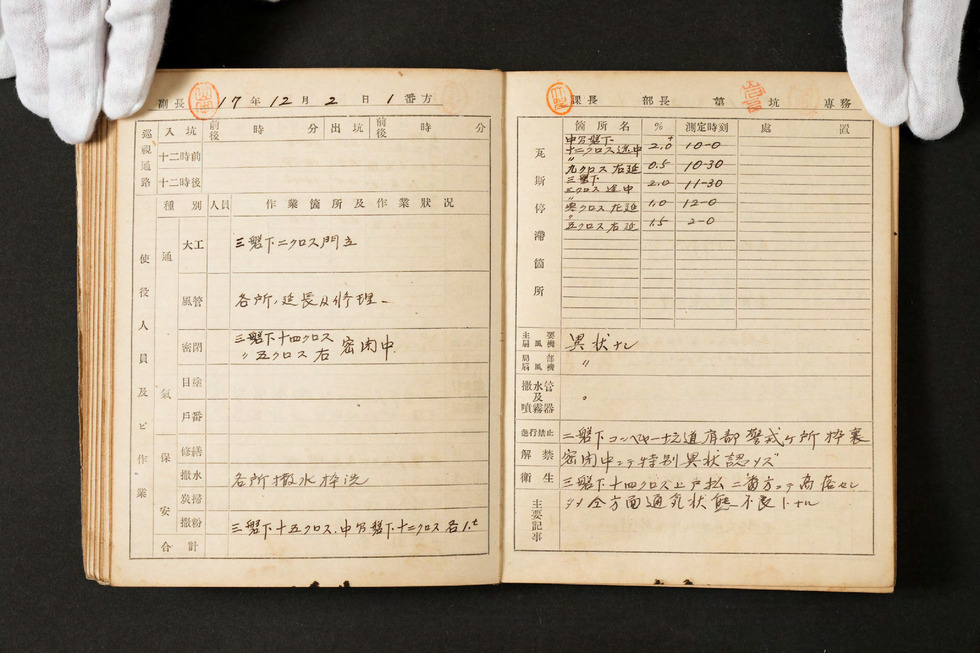 副長 17年12月2日1番方
巡視通路 入坑 前後 時 分 出坑 前後 時 分
十二時前
十二時後
使役人員及ビ作業
種別 人員 作業箇所及作業狀況
通氣
大工 三盤下二クロス門立
風管 各所ノ延長及修理
密閉 三盤下十四クロス
〃 五クロス右 密閉中
目塗
戸番
保安
修繕
撒水 各所撒水枠洗
炭掃
撒粉 三盤下十五クロス、中 盤下十二クロス各1.t
合計
課長 部長 第 坑 專務
瓦斯停滯箇所
箇所名 % 測定時刻 處置
中 盤下
十二クロス途中 2.0 10-0
〃
九クロス右延 0.5 10-30
三盤下
クロス途中 2.0 11-30
〃
クロス左延 1.0 12-0
〃
五クロス右延 1.5 2-0
主要扇風機 異状ナレ
局部扇風機 〃
撒水管及噴霧器 〃
進行禁止 二盤下コンベヤー 道肩部 ケ所枠裏
解禁 密閉中ニテ特別異状認メズ
衛生 三盤下十四クロス上戸 二番方ニテ セレ
主要記事 タメ全方面通気状態不良トナル